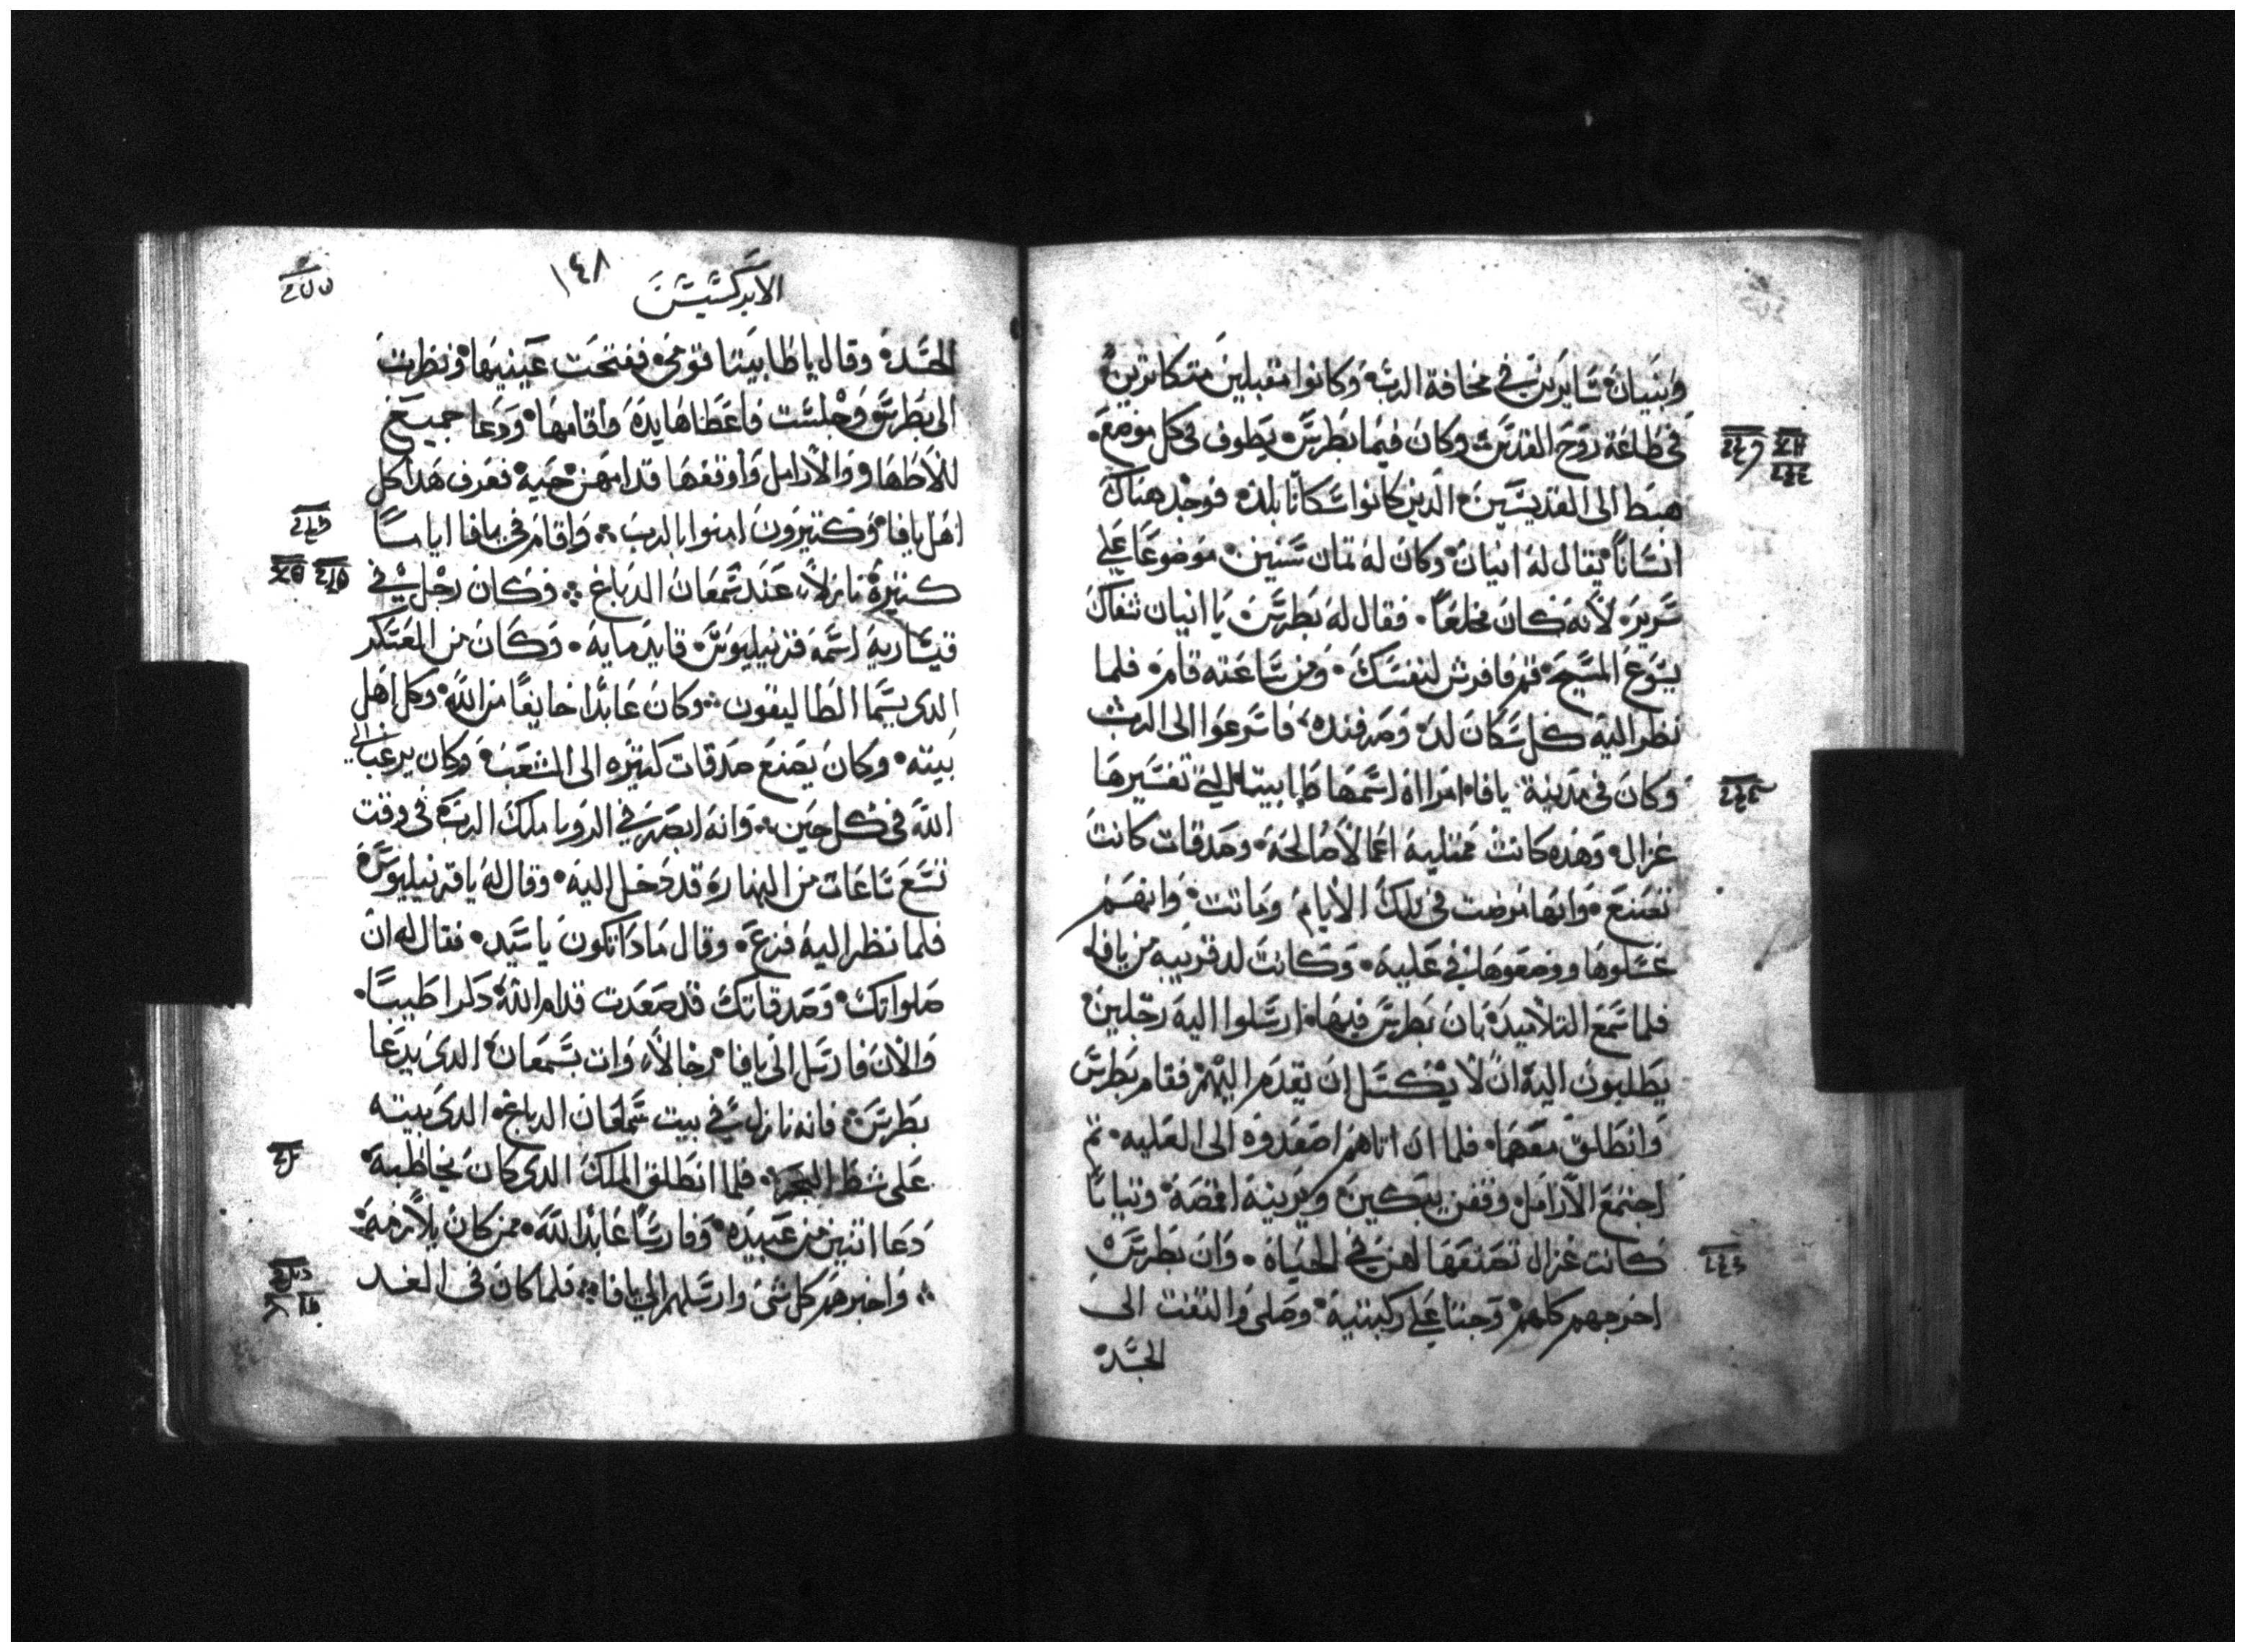 وبنيان سايرين في مخافة الرب وكانوا مقبلين متكاترين
في طاعة روح القدس وكان فيما بطرس يطوف في كل موضع
هبط الى القديسين الدين كانوا سكانا بلده فوجد هناك
انسانا يقال له انيان وكان له تمان سنين موضوعا علي
سرير لانه كان مخلعا فقال له بطرس يا انيان شفاك
يسوع المسيح قم فافرش لنفسك ومن ساعته قام فلما
نظر اليه كل سكان لده وصرفنده فاسرعوا الى الرب
وكان في مدينة يافا امراه اسمها طابيتا التي تفسيرها
غزال وهده كانت ممتليه اعمالا صالحة وصدقات كانت
تصنع وانها مرضت في تلك الايام وماتت وانهم
غسلوها ووضعوها في علية وكانت لد قريبه من يافا
فلما سمع التلاميد بان بطرس فيها ارسلوا اليه رجلين
يطلبون اليه ان لا يكسل ان يقدم اليهم فقام بطرس
وانطلق معهما فلما ان اتاهم اصعدوه الى العليه تم
اجتمع الارامل وقفن يبكين ويرينه اقمصة وتيابا
كانت غزال تصنعها لهن في الحياة وان بطرس
اخرجهم كلهم وجتا علي ركبتيه وصلى والتفت الى
الجسد
الابركسيس
١٤٨
الجسد وقال يا طابيتا قومي ففتحت عينيها ونظرت
الى بطرس وجلست فاعطاها يده واقامها ودعا جميع
الاطهار والارامل واوقفها قدامهن حية فعرف هدا كل
اهل يافا وكتيرون امنوا بالرب واقام في يافا اياما
كتيرة نازلا عند سمعان الدباغ وكان رجل في
قيسارية اسمه قرنيليوس قايد مايه وكان من العسكر
الدي يسما الطاليقون وكان عابدا خايفا من الله وكل اهل
بيته وكان يصنع صدقات كتيره الى الشعب وكان يرغب الى
الله في كل حين وانه ابصر في الرويا ملك الرب في وقت
تسع ساعات من النهار قد دخل اليه وقال له يا قرنيليوس
فلما نظر اليه فزع وقال مادا تكون يا سيد فقال له ان
صلواتك وصدقاتك قد صعدت قدام الله دكرا طيبا
والان فارسل الى يافا رجالا وات بسمعان الدي يدعا
بطرس فانه نازل في بيت سمعان الدباغ الدي بيته
على شط البحر فلما انطلق الملك الدي كان يخاطبه
دعا اتنين من عبيده وفارسا عابدا لله ممن كان يلازمه
واخبرهم كل شي وارسلهم الى يافا فلما كان في الغد